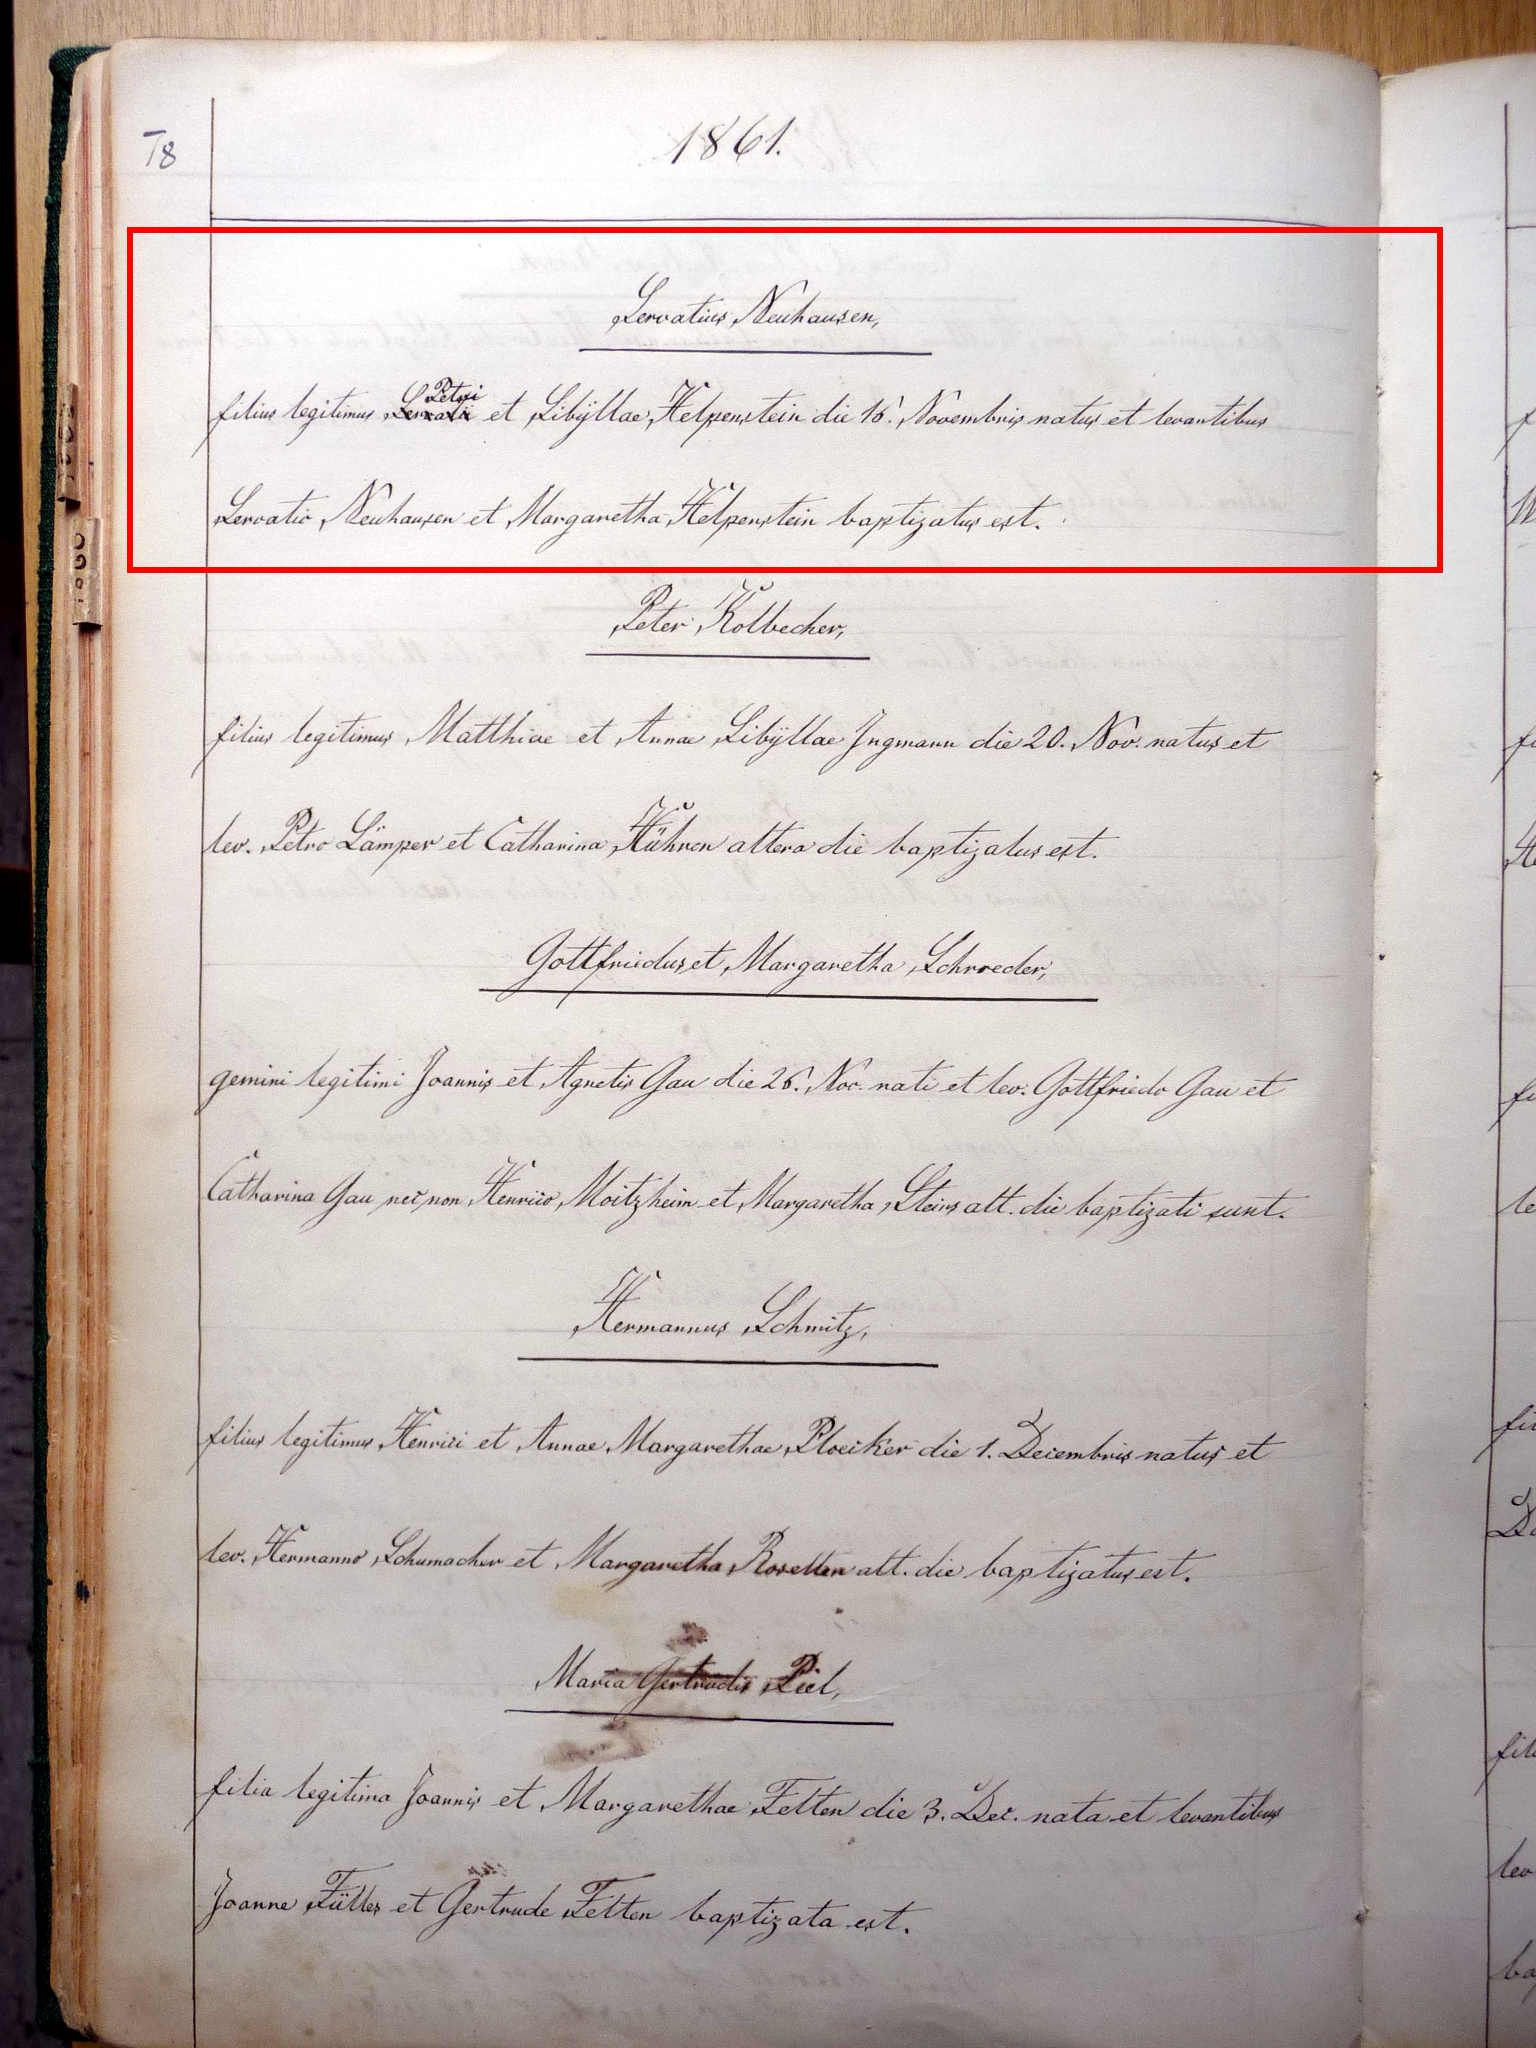 T8
1861.
Servatius Neuhausen,
Petri
filius legitimus Servatii et Sibÿllae Helpenstein die 16. Novembris natus et levantibus
Servatio Neuhausen et Margaretha Helpenstein baptizatus est.
Peter Kolbecher,
filius legitimus Matthiae et Annae Sibÿllae Ingmann die 20. Nov. natus et
lev. Petro Lämper et Catharina Kühren altera die baptizatus est.
Gottfriedus et Margaretha Schroeder,
gemini legitimi Joannis et Agnetis Gau die 26. Nov. nati et lev. Gottfriedo Gau et
Catharina Gau nec non Henrico Moitzheim et Margaretha Steins alt. die baptizati sunt.
Hermannus Schmitz,
filius legitimus Henrici et Annae Margarethae Ploeiker die 1. Decembris natus et
lev. Hermanno Schumacher et Margaretha Rosellen alt. die baptizatus est.
Maria Gertrudis Piel,
filia legitima Joannis et Margarethae Fetten die 3. Dec. nata et levantibus
Joanne Fülles et Gertrude Fetten baptizata est.